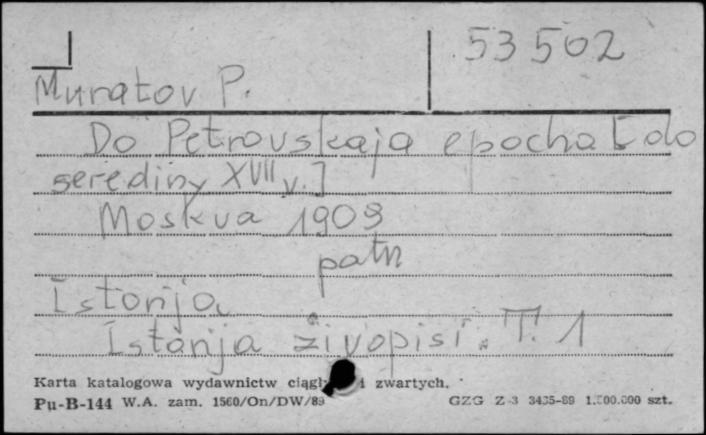 53502
Muratov P.
Do Petrovskaja epocha [do
serediny XVII v.]
Moskva 1909
patrz
Istorija
Istorija živopisi. T. 1
Karta katalogowa wydawnictw i zwartych.
Pu-B-144 W.A. zam. 1560/On/DW/89 GZG Z-3 3435-89 1.500.000 szt.